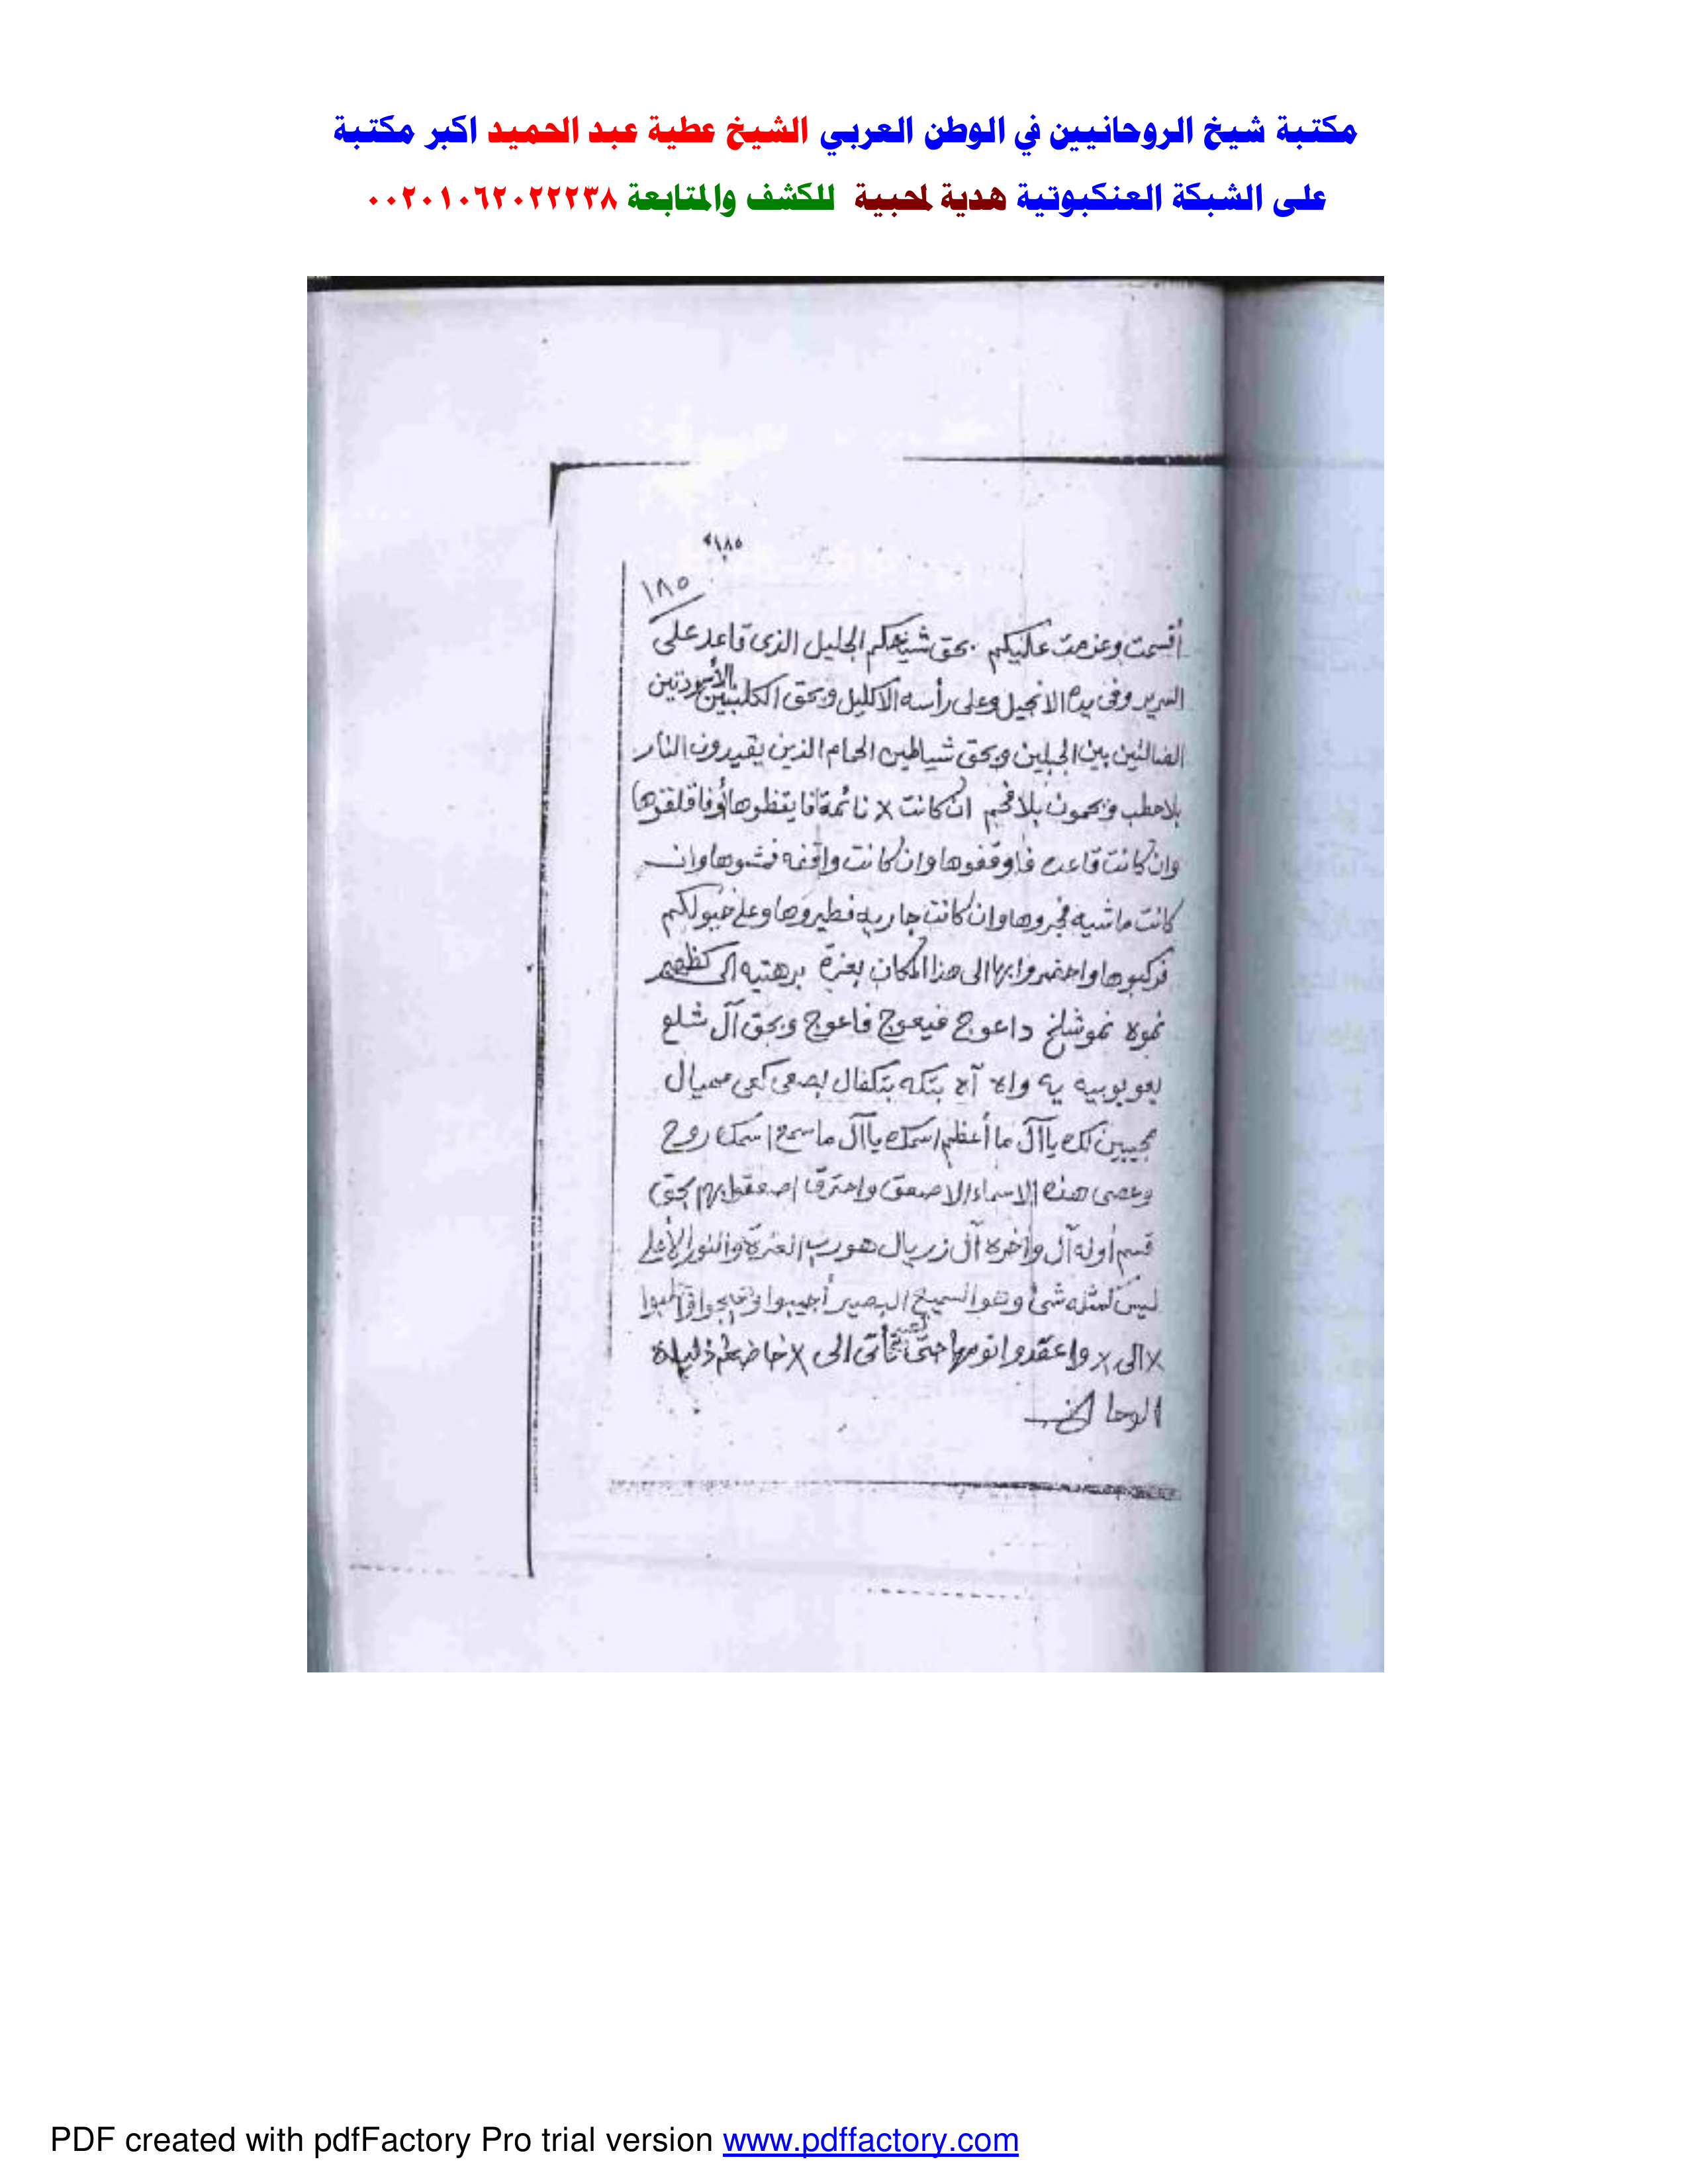 مكتبة شيخ الروحانيين في الوطن العربي الشيخ عطية عبد الحميد اكبر مكتبة
على الشبكة العنكبوتية هدية لمحبية للكشف والمتابعة ٠٠٢٠١٠٦٢٠٢٢٢٣٨
١٨٥
١٨٥
أقسمت وعزمت عليكم بحق شيخكم الجليل الذى قاعد على
السرير وفى يده الانجيل وعلى رأسه الاكليل وبحق الكلبين الأسودين
بين الجبلين وبحق شياطين الحمام الذين يقيدون النار
بلا حطب وبحمون بلا فحم ان كانت x نائمة فايقظوها أوفاقلقوها
وان كانت قاعده فاوقفوها وان كانت واقفه فمشوها وان
كانت ماشيه فجروها وان كانت جاريه فطيروها وعلى خيولكم
فركبوها واحضروا بها الى هذا المكان بعزة برهتيه الى كظهير
نموه نموشلخ داعوج فيعوج فاعوج وبحق آل شلع
يعو يوبيه يه واه آه بتكه بتكفال بصعى كعى مميال
مجيبين لك يا آل ما أعظم اسمك يا آل ما سمع اسمك روح
وعصى هذه الاسماء الا صعق واحترق اصعقوا بهم بحق
قسم أوله آل وآخره آل زريال هو رب العزة والنور الأعلى
ليس كمثله شئ وهو السميع البصير أجيبوا
x الى x واعقدوا نومها حتى تأتى الى x خاضعة ذليلة
الوحا
PDF created with pdfFactory Pro trial version www.pdffactory.com